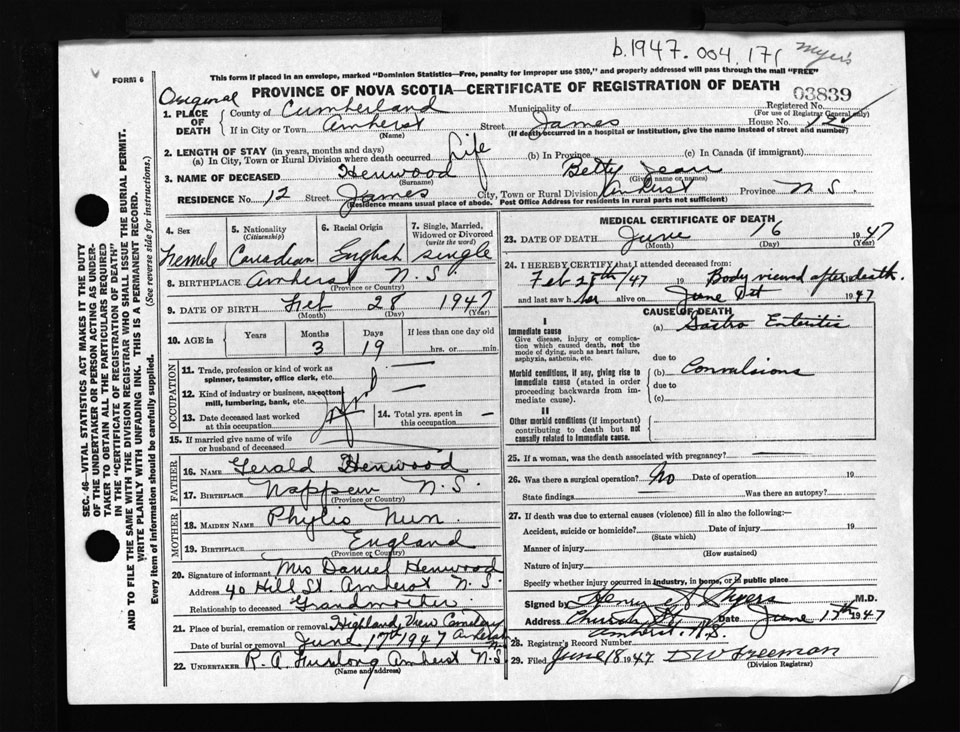 b.1947.004.171
Myers
FORM 6
This form if placed in an envelope, marked "Dominion Statistics—Free, penalty for improper use $300," and properly addressed will pass through the mail "FREE"
PROVINCE OF NOVA SCOTIA—CERTIFICATE OF REGISTRATION OF DEATH
03839
Original
1. PLACE OF DEATH
County of Cumberland
Municipality of
Registered No.
(For use of Registrar General only)
If in City or Town Amherst Street James House No.
(Name) (If death occurred in a hospital or institution, give the name instead of street and number)
2. LENGTH OF STAY (in years, months and days)
(a) In City, Town or Rural Division where death occurred Life (b) In Province (c) In Canada (if immigrant)
3. NAME OF DECEASED Henwood Betty Jean
(Surname) (Given name or names)
RESIDENCE No. 12 Street James City, Town or Rural Division Amherst Province N.S.
(Residence means usual place of abode. Post Office Address for residents in rural parts not sufficient)
4. Sex
5. Nationality (Citizenship)
6. Racial Origin
7. Single, Married, Widowed or Divorced (write the word)
Female Canadian English single
8. BIRTHPLACE Amherst N.S.
(Province or Country)
9. DATE OF BIRTH Feb 28 1947
(Month) (Day) (Year)
10. AGE in Years Months Days If less than one day old
3 19 hrs. or min.
OCCUPATION
11. Trade, profession or kind of work as spinner, teamster, office clerk, etc. —
12. Kind of industry or business, as cotton mill, lumbering, bank, etc. —
13. Date deceased last worked at this occupation
14. Total yrs. spent in this occupation —
15. If married give name of wife or husband of deceased
FATHER
16. NAME Gerald Henwood
17. BIRTHPLACE Nappen N.S.
(Province or Country)
MOTHER
18. MAIDEN NAME Phylis Nun.
19. BIRTHPLACE England
(Province or Country)
20. Signature of informant Mrs Daniel Henwood
Address 40 Hill St. Amherst N.S.
Relationship to deceased Grandmother
21. Place of burial, cremation or removal Highland View Cemetery
Date of burial or removal June 17th 1947 Amherst N.S.
22. UNDERTAKER R. A. Furlong Amherst N.S.
(Name and address)
MEDICAL CERTIFICATE OF DEATH
23. DATE OF DEATH June 16 1947
(Month) (Day) (Year)
24. I HEREBY CERTIFY that I attended deceased from:
Feb 28th/47 19 Body viewed after death.
and last saw her alive on June 1947
CAUSE OF DEATH
I
Immediate cause
Give disease, injury or complication which caused death, not the mode of dying, such as heart failure, asphyxia, asthenia, etc.
(a) Gastro Enteritis
due to
Morbid conditions, if any, giving rise to immediate cause (stated in order proceeding backwards from immediate cause).
(b) Convulsions
due to
(c)
II
Other morbid conditions (if important) contributing to death but not causally related to immediate cause.
25. If a woman, was the death associated with pregnancy? —
26. Was there a surgical operation? No Date of operation 19
State findings Was there an autopsy?
27. If death was due to external causes (violence) fill in also the following:—
Accident, suicide or homicide? Date of injury 19
(State which)
Manner of injury
(How sustained)
Nature of injury
Specify whether injury occurred in industry, in home, or in public place
Signed by Henry Myers M.D.
Address Church St Date June 17th 1947
Amherst. N.S.
28. Registrar's Record Number
29. Filed June 18 1947 D W Freeman
(Division Registrar)
SEC. 46—VITAL STATISTICS ACT MAKES IT THE DUTY
OF THE UNDERTAKER OR PERSON ACTING AS UNDERTAKER
TO OBTAIN ALL THE PARTICULARS REQUIRED
IN THE "CERTIFICATE OF REGISTRATION OF DEATH"
AND TO FILE THE SAME WITH THE DIVISION REGISTRAR WHO SHALL ISSUE THE BURIAL PERMIT.
WRITE PLAINLY WITH UNFADING INK. THIS IS A PERMANENT RECORD.
Every item of information should be carefully supplied. (See reverse side for instructions.)